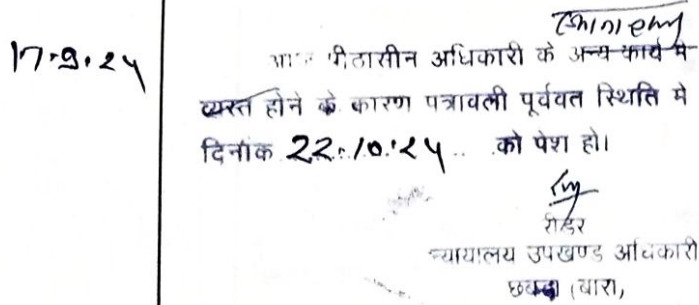 17.9.24
पीठासीन अधिकारी के अन्य कार्य मे
व्यस्त होने के कारण पत्रावली पूर्ववत स्थिति मे
दिनांक 22.10.24 .. को पेश हो।
रीडर
न्यायालय उपखण्ड अधिकारी
छबडा (बारा,